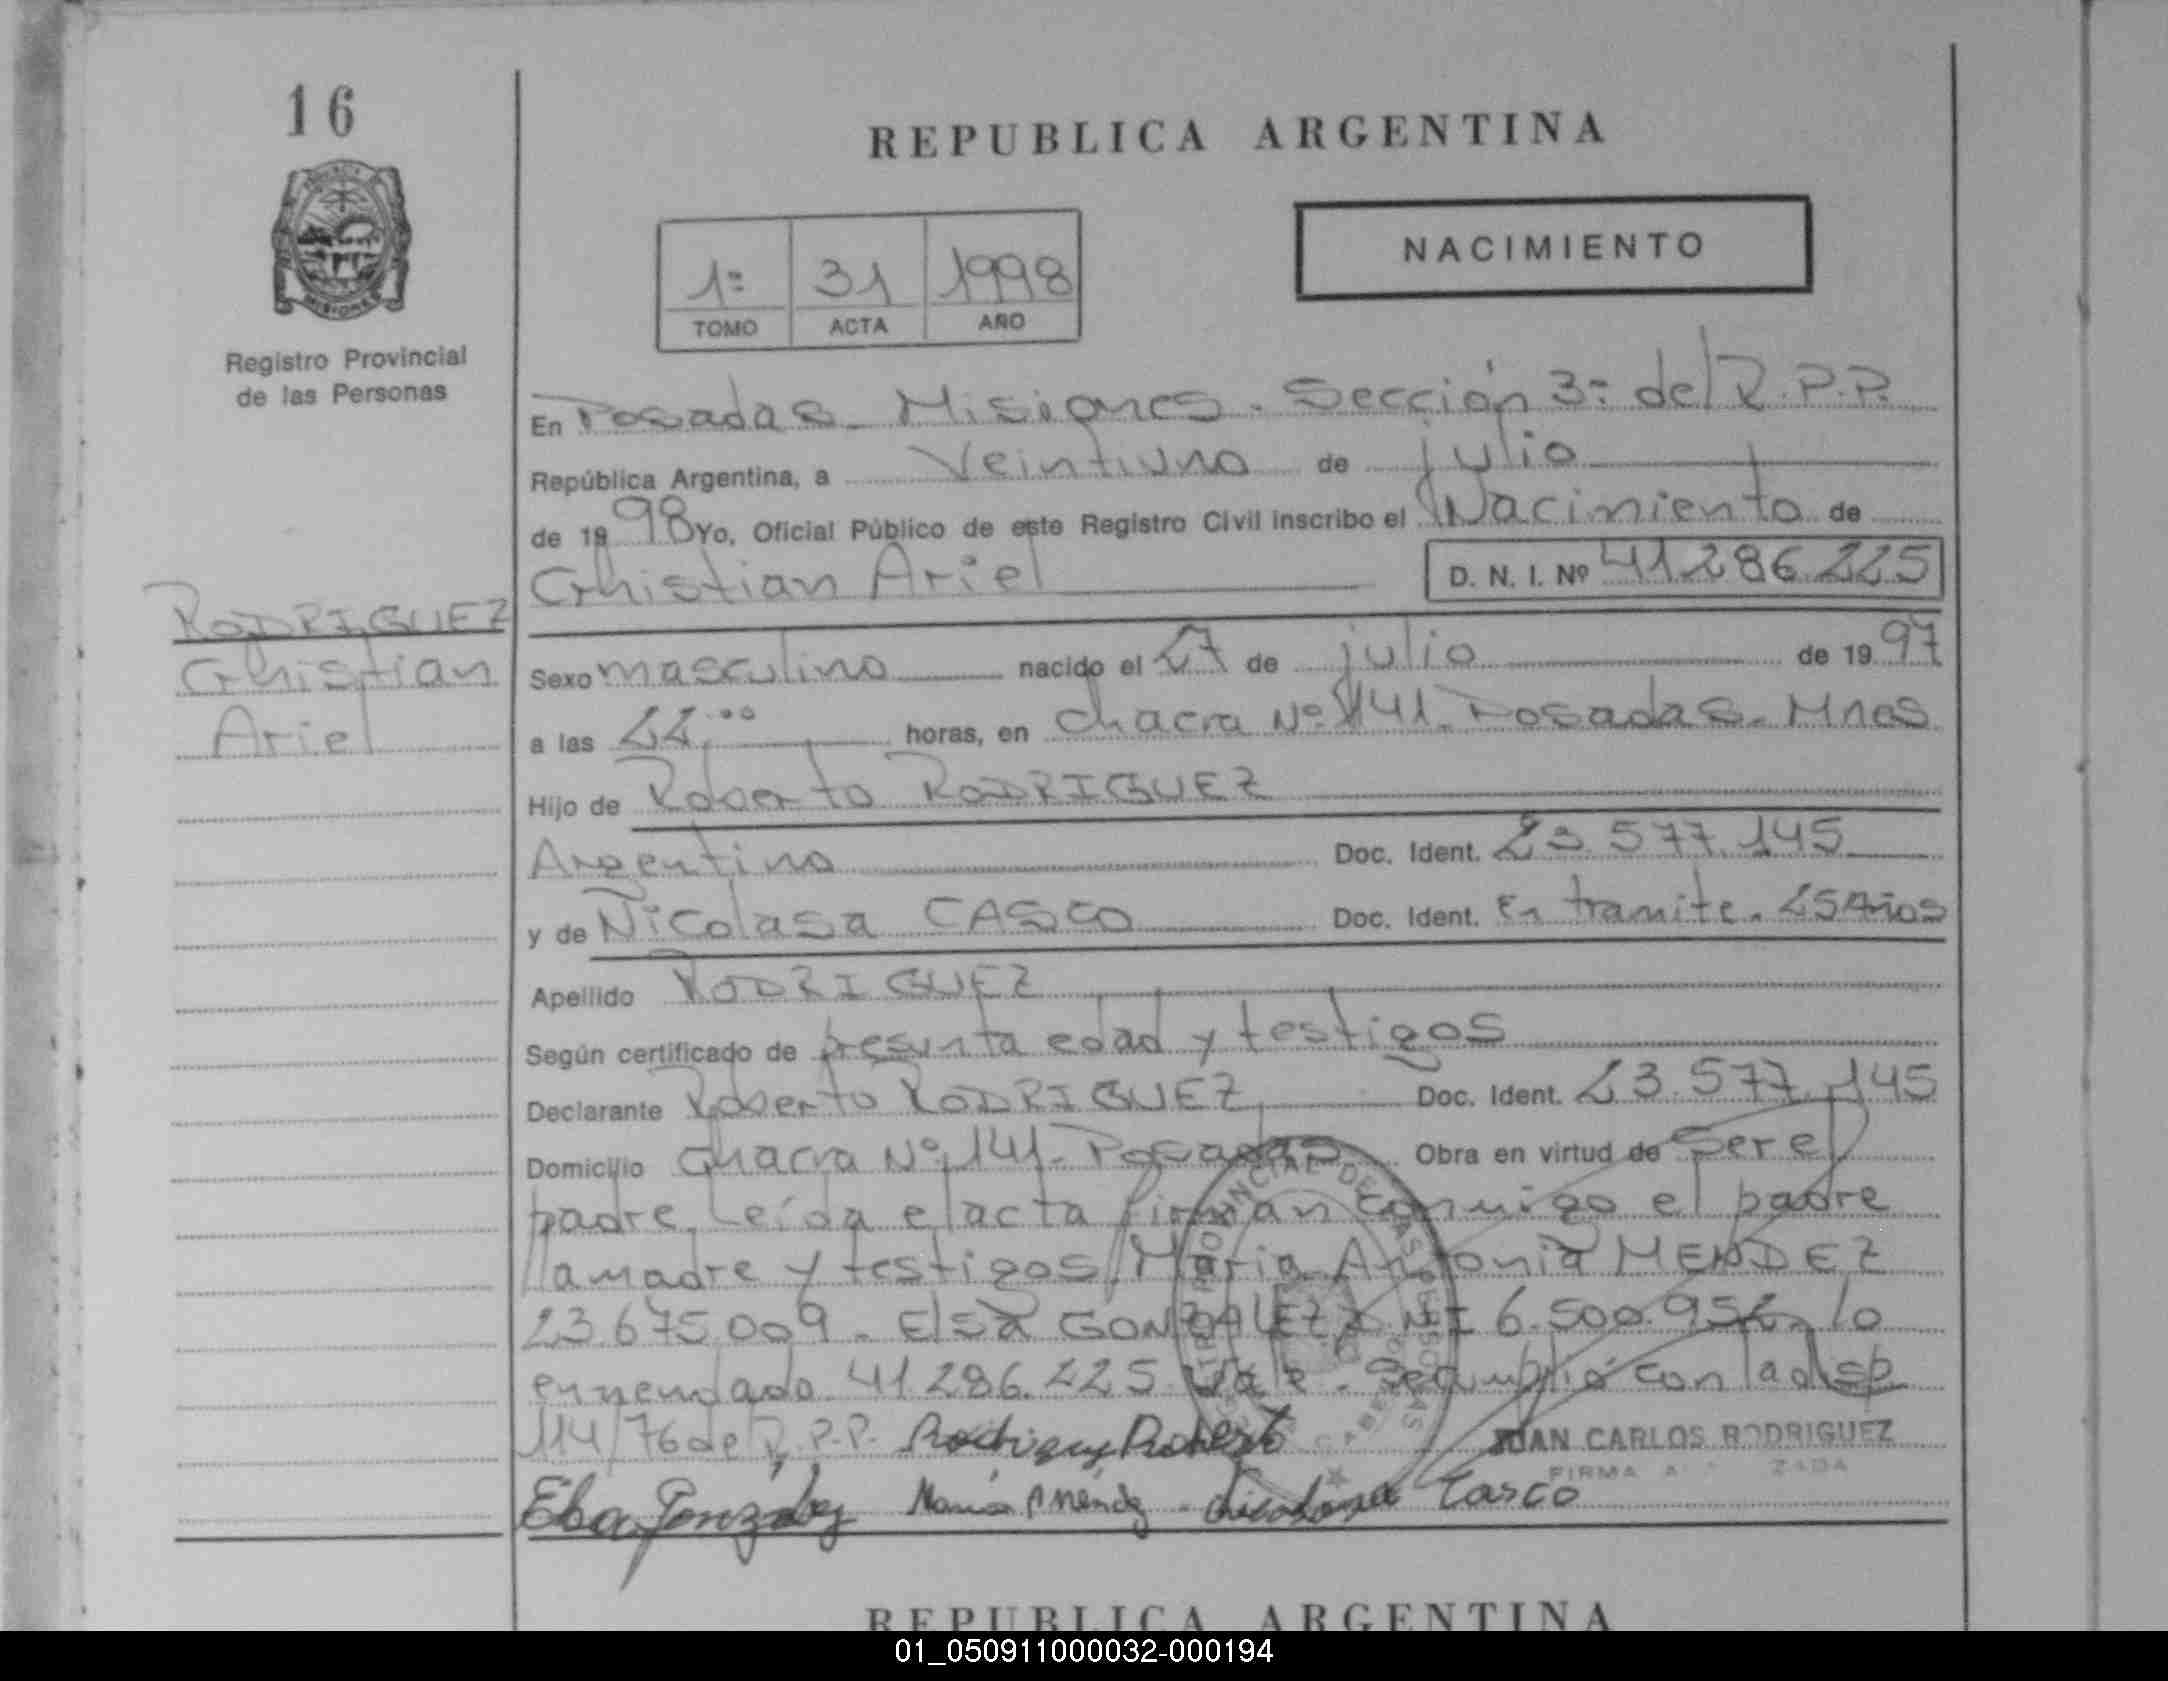 16
REPUBLICA ARGENTINA
NACIMIENTO
1º 31 1998
TOMO ACTA AÑO
Registro Provincial
de las Personas
En Posadas - Misiones - Sección 3º del R.P.P.
República Argentina, a Veintiuno de julio
de 1998 Yo, Oficial Público de este Registro Civil inscribo el Nacimiento de
Chistian Ariel D. N. I. Nº 41.286.225
RODRIGUEZ
Chistian
Ariel
Sexo masculino nacido el 27 de julio de 1997
a las 22.00 horas, en chacra Nº 141 - Posadas - Mnes
Hijo de Roberto RODRIGUEZ
Argentino Doc. Ident. 23.577.145
y de Nicolasa CASCO Doc. Ident. En tramite - 25 Años
Apellido RODRIGUEZ
Según certificado de presunta edad y testigos
Declarante Roberto RODRIGUEZ Doc. Ident. 23.577.145
Domicilio Chacra Nº 141 - Posadas Obra en virtud de Ser el
padre. Leída el acta firman conmigo el padre
la madre y testigos Maria Antonia MENDEZ
23.675.009 - Elsa GONZALEZ 6.500.952 - lo
enmendado 41.286.225 Vale - Se cumplió con la disp
114/76 del R.P.P. Rodriguez Robert
JUAN CARLOS RODRIGUEZ
FIRMA
Elsa González Maria A Méndez Nicolasa Casco
REPUBLICA ARGENTINA
01_050911000032-000194